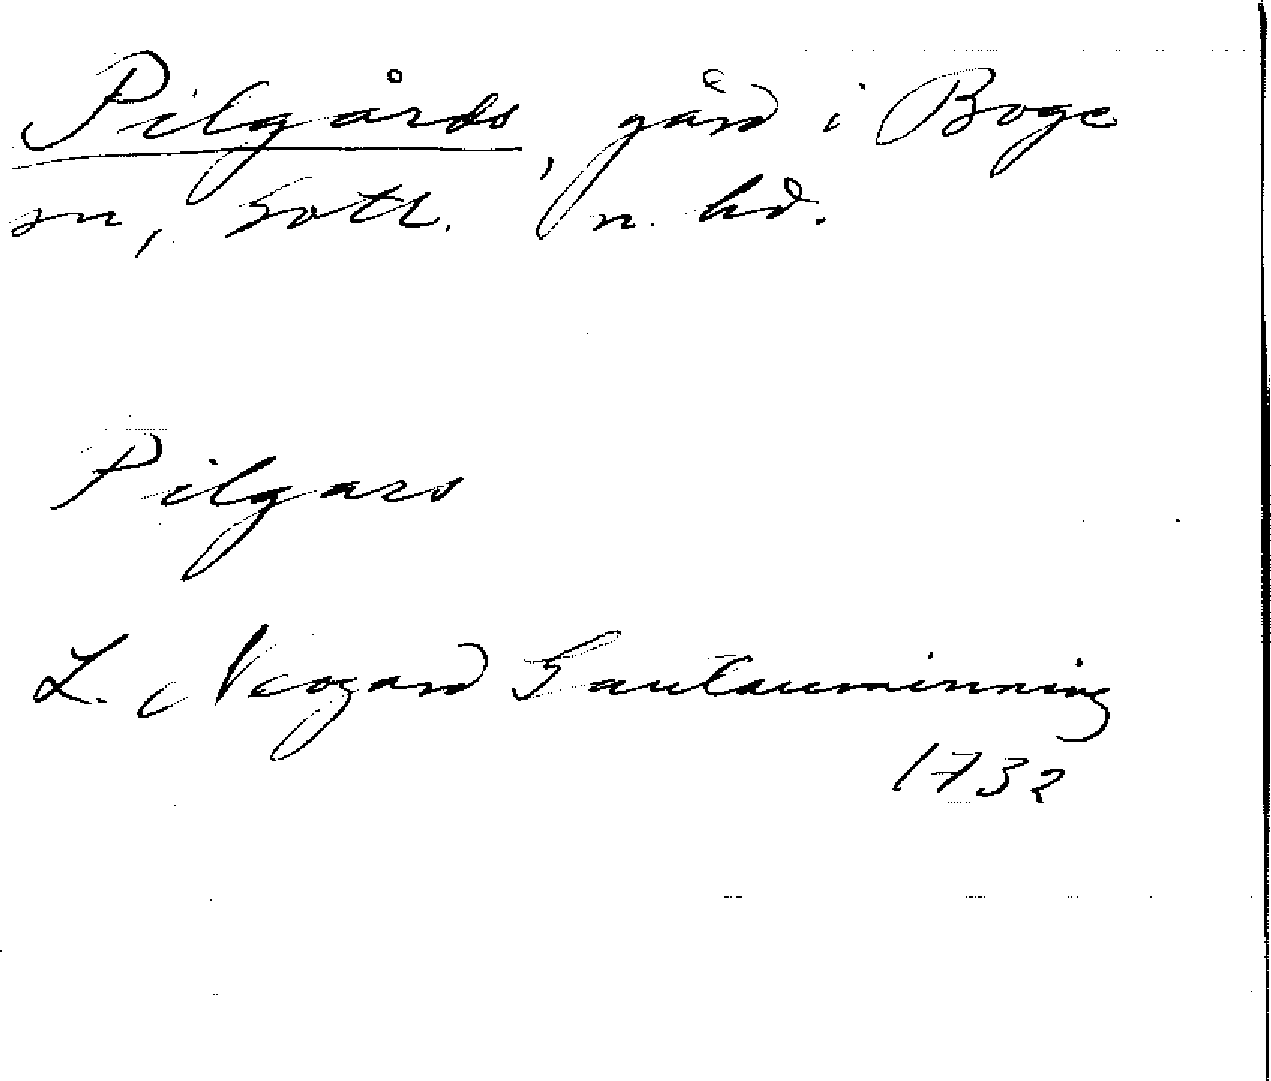 Pilgårds, gård i Boge
sn, Gotl. n. hd.
Pilgars
L. Neogard Gautauminning
1732